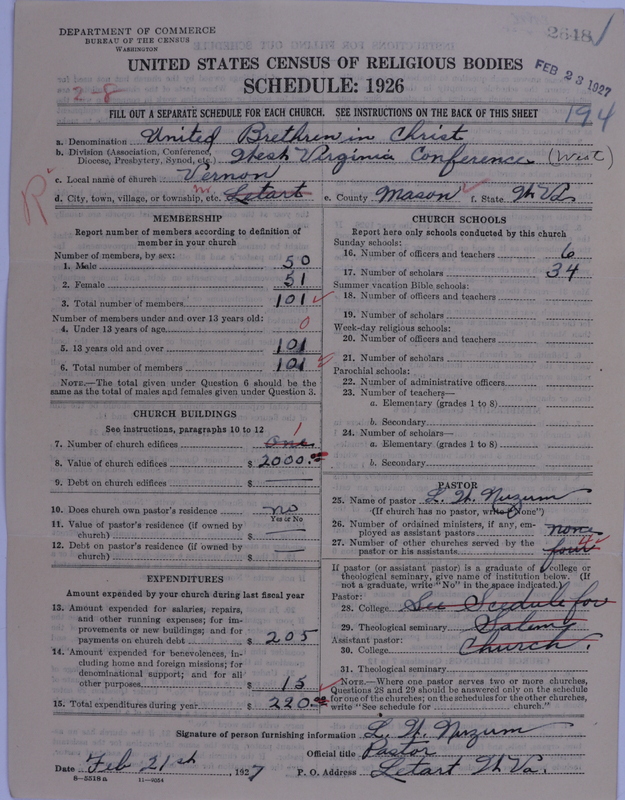 DEPARTMENT OF COMMERCE
BUREAU OF THE CENSUS
WASHINGTON
2648
UNITED STATES CENSUS OF RELIGIOUS BODIES
FEB 23 1927
SCHEDULE: 1926
2-8
FILL OUT A SEPARATE SCHEDULE FOR EACH CHURCH. SEE INSTRUCTIONS ON THE BACK OF THIS SHEET
194
a. Denomination United Brethren in Christ
b. Division (Association, Conference, Diocese, Presbytery, Synod, etc.) West Virginia Conference (West)
c. Local name of church Vernon
d. City, town, village, or township, etc. Letart e. County Mason f. State W Va
MEMBERSHIP
Report number of members according to definition of member in your church
Number of members, by sex:
1. Male 50
2. Female 51
3. Total number of members 101
Number of members under and over 13 years old:
4. Under 13 years of age 0
5. 13 years old and over 101
6. Total number of members 101
NOTE.—The total given under Question 6 should be the same as the total of males and females given under Question 3.
CHURCH BUILDINGS
See instructions, paragraphs 10 to 12
7. Number of church edifices one 1
8. Value of church edifices $ 2000.00
9. Debt on church edifices $
10. Does church own pastor's residence no
Yes or No
11. Value of pastor's residence (if owned by church) $
12. Debt on pastor's residence (if owned by church) $
EXPENDITURES
Amount expended by your church during last fiscal year
13. Amount expended for salaries, repairs, and other running expenses; for improvements or new buildings; and for payments on church debt $ 205
14. Amount expended for benevolences, including home and foreign missions; for denominational support; and for all other purposes $ 15
15. Total expenditures during year $ 220.00
CHURCH SCHOOLS
Report here only schools conducted by this church
Sunday schools:
16. Number of officers and teachers 6
17. Number of scholars 34
Summer vacation Bible schools:
18. Number of officers and teachers
19. Number of scholars
Week-day religious schools:
20. Number of officers and teachers
21. Number of scholars
Parochial schools:
22. Number of administrative officers
23. Number of teachers—
a. Elementary (grades 1 to 8)
b. Secondary
24. Number of scholars—
a. Elementary (grades 1 to 8)
b. Secondary
PASTOR
25. Name of pastor L. W. Nuzum
(If church has no pastor, write "None")
26. Number of ordained ministers, if any, employed as assistant pastors none
27. Number of other churches served by the pastor or his assistants four 4
If pastor (or assistant pastor) is a graduate of college or theological seminary, give name of institution below. (If not a graduate, write "No" in the space indicated.)
Pastor:
28. College See Scedule for
29. Theological seminary Salem
Assistant pastor:
30. College Church.
31. Theological seminary
NOTE.—Where one pastor serves two or more churches, Questions 28 and 29 should be answered only on the schedule for one of the churches; on the schedules for the other churches, write "See schedule for church."
Signature of person furnishing information L. W. Nuzum
Official title Pastor
Date Feb 21st, 1927 P. O. Address Letart W Va.
8-5518a 11-9054